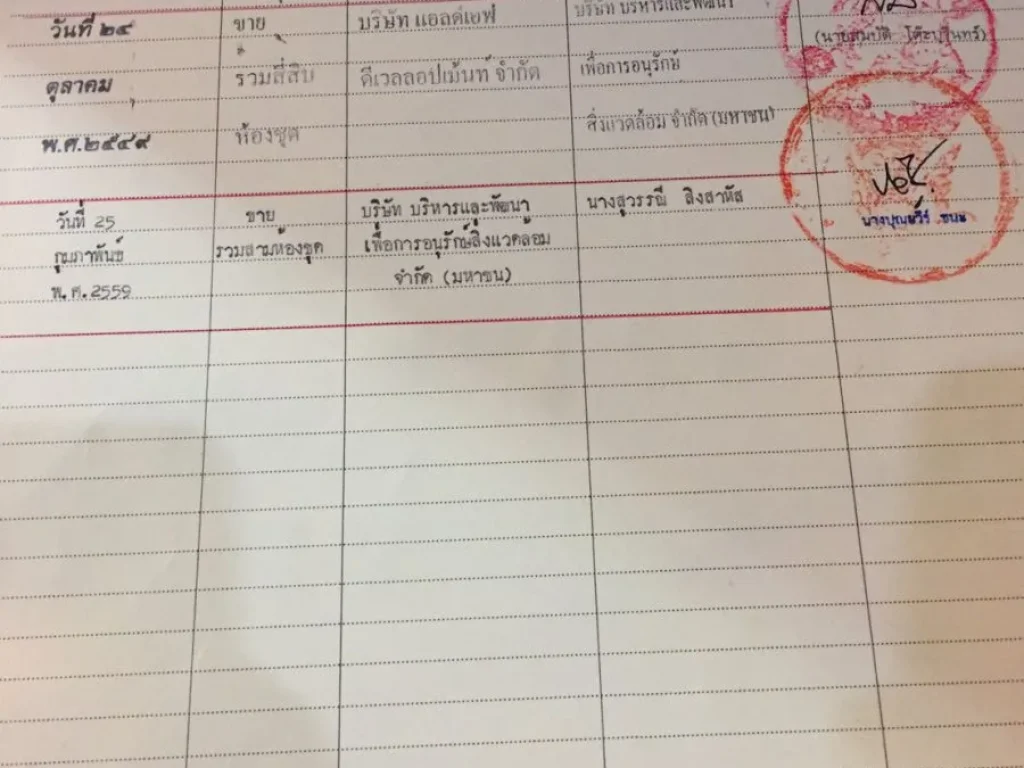 วันที่ ๒๔ ขาย บริษัท แอลดีเอฟ บริษัท บริหารและพัฒนา
ตุลาคม รวมสี่สิบ ดีเวลลอปเม้นท์ จำกัด เพื่อการอนุรักษ์
พ.ศ.๒๕๔๙ ห้องชุด สิ่งแวดล้อม จำกัด (มหาชน)
(นายสมบัติ
วันที่ 25 ขาย บริษัท บริหารและพัฒนา นางสุวรรณี สิงสาหัส
กุมภาพันธ์ รวมสามห้องชุด เพื่อการอนุรักษ์สิ่งแวดล้อม
พ.ศ.2559 จำกัด (มหาชน)